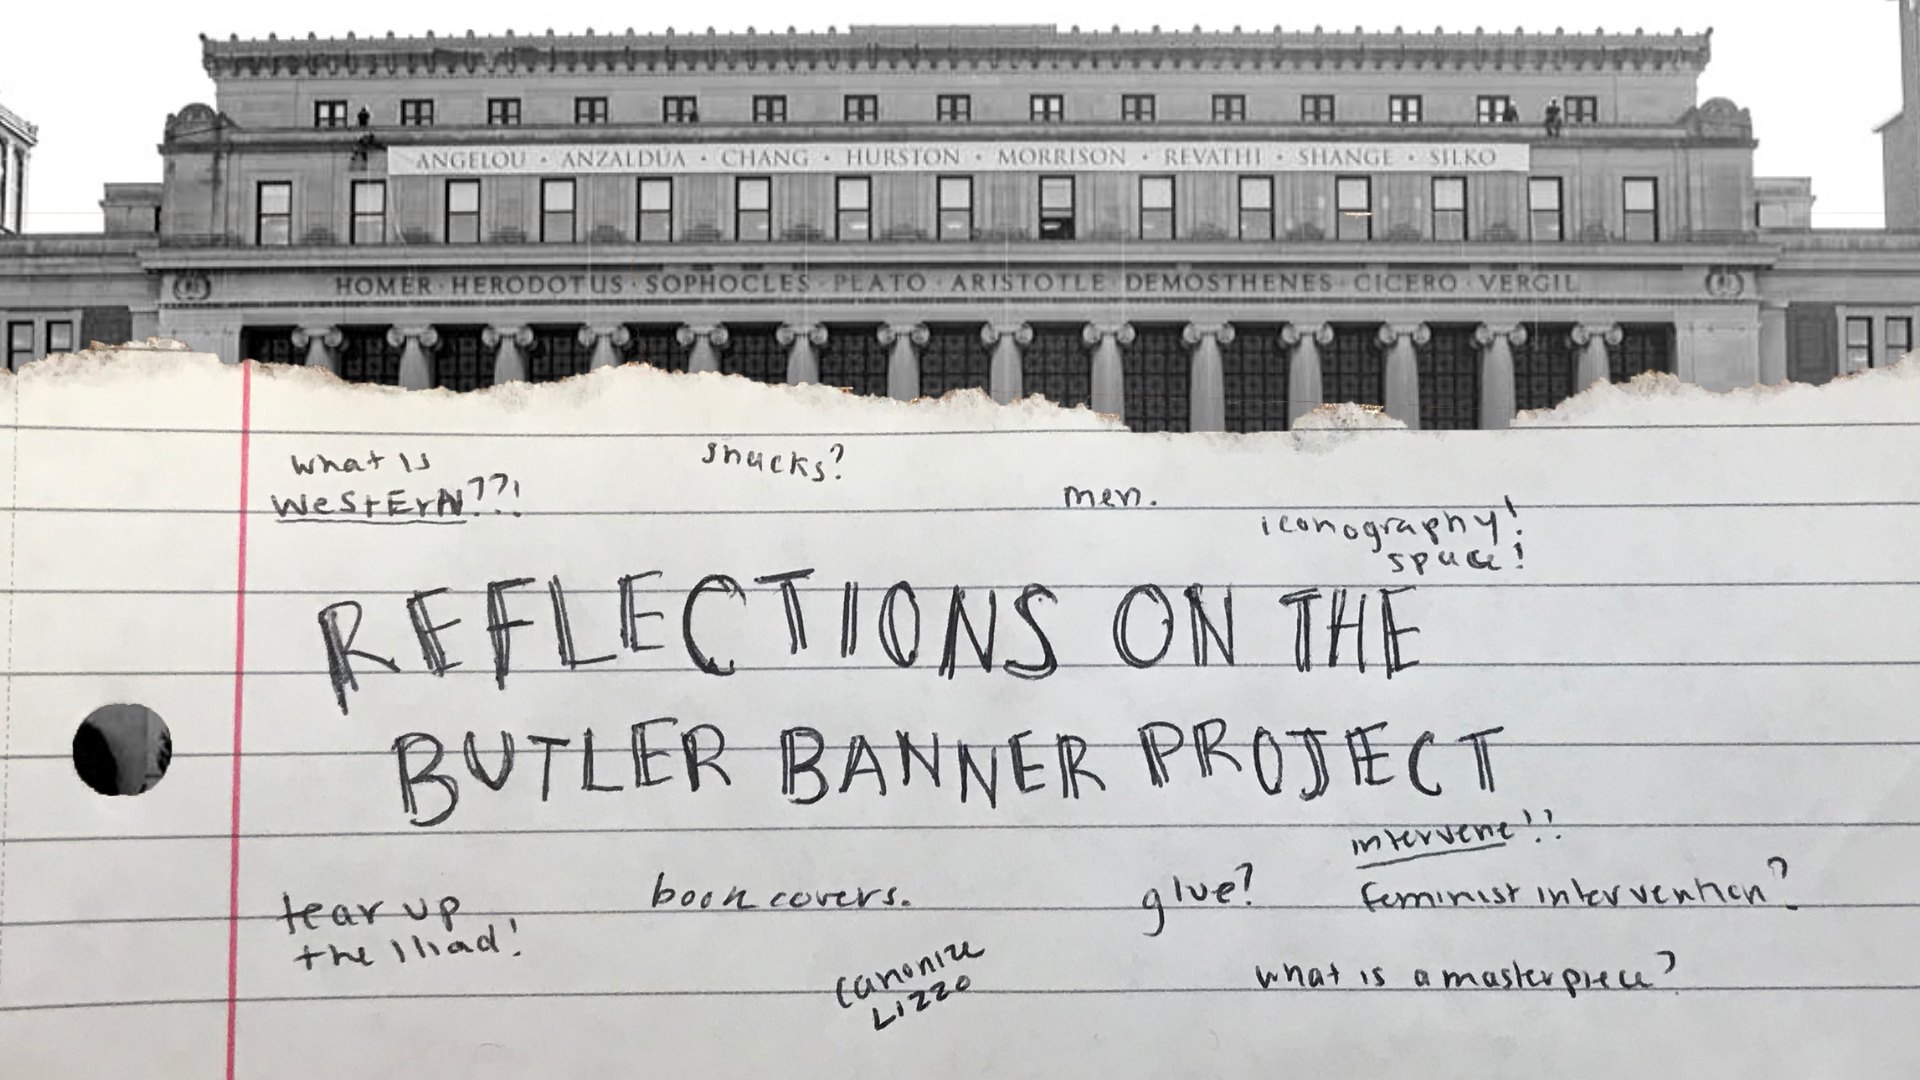 ANGELOU · ANZALDÚA · CHANG · HURSTON · MORRISON · REVATHI · SHANGE · SILKO
HOMER · HERODOTUS · SOPHOCLES · PLATO · ARISTOTLE · DEMOSTHENES · CICERO · VERGIL
what is
WeStErN??!
snacks?
men.
iconography!
space!
REFLECTIONS ON THE
BUTLER BANNER PROJECT
intervene!!
tear up
the Iliad!
book covers.
glue?
feminist intervention?
canonize
Lizzo
what is a masterpiece?